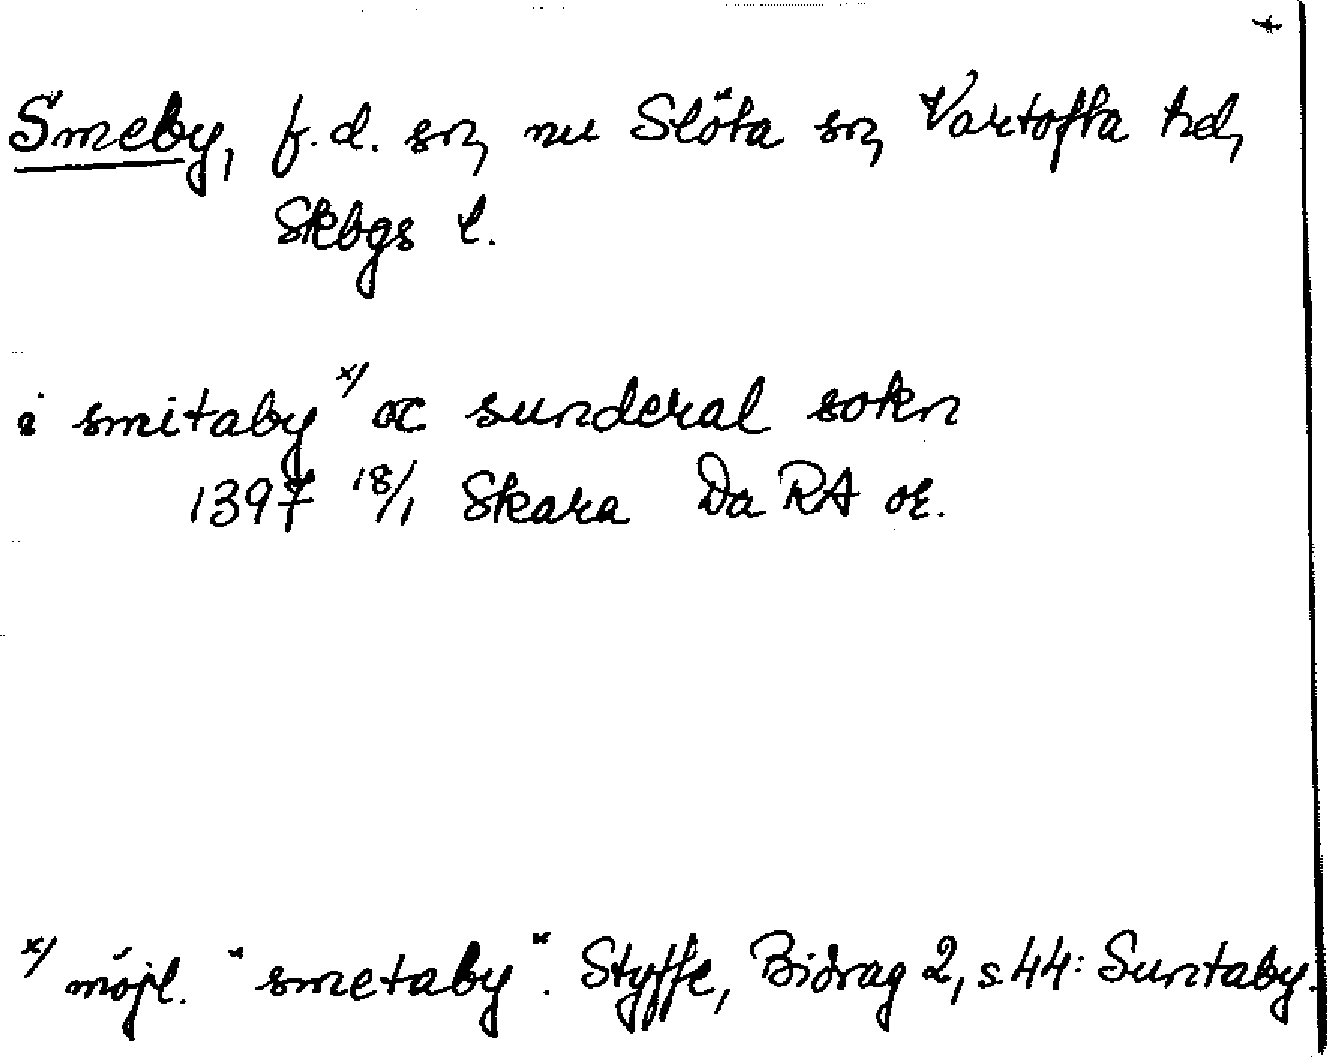 Smeby, f.d. sn, nu Slöta sn, Vartofta hd,
Skbgs l.
i smitaby x/ oc sunderal sokn
1397 18/1 Skara Da RA or.
x/ möjl. "smetaby". Styffe, Bidrag 2, s 44: Suntaby.